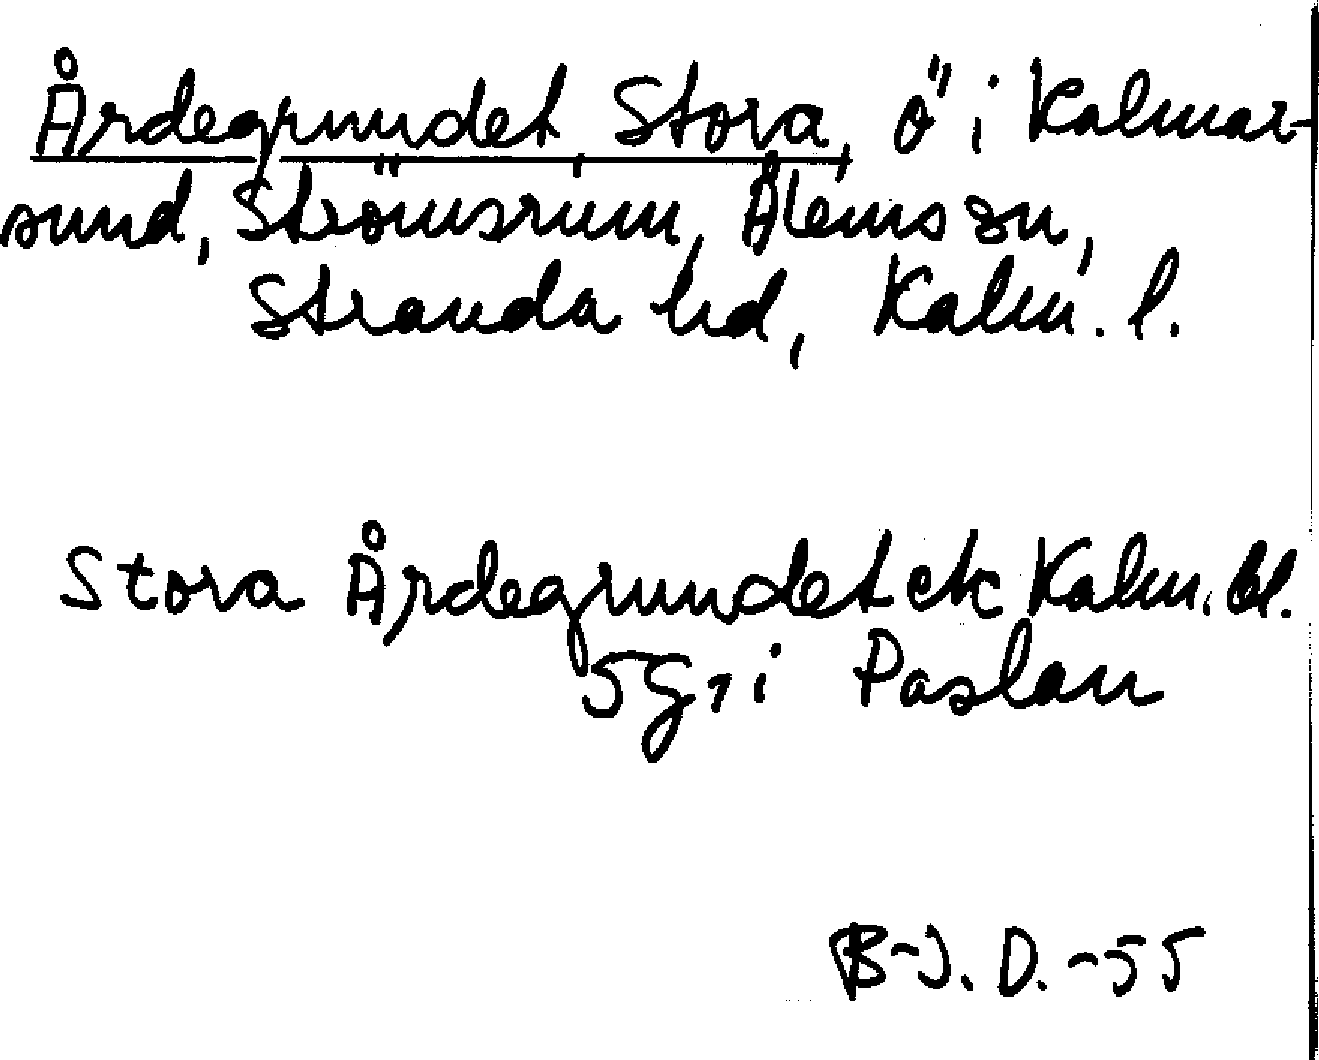 Årdegrundet Stora, ö i Kalmar-
sund, Strömsrum, Ålems sn,
Stranda hd, Kalm. l.
Stora Årdegrundet ek Kalm. bl.
5g, i Paslan
B-J. D. -55